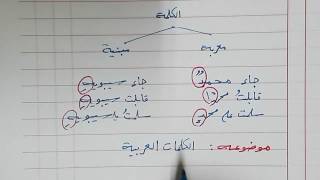 الكلمة
معربة مبنية
جاء محمدٌ جاء سيبويهِ
قابلت محمدًا قابلت سيبويهِ
سلمت على محمدٍ سلمت على سيبويهِ
موضوعه : الكلمات العربية